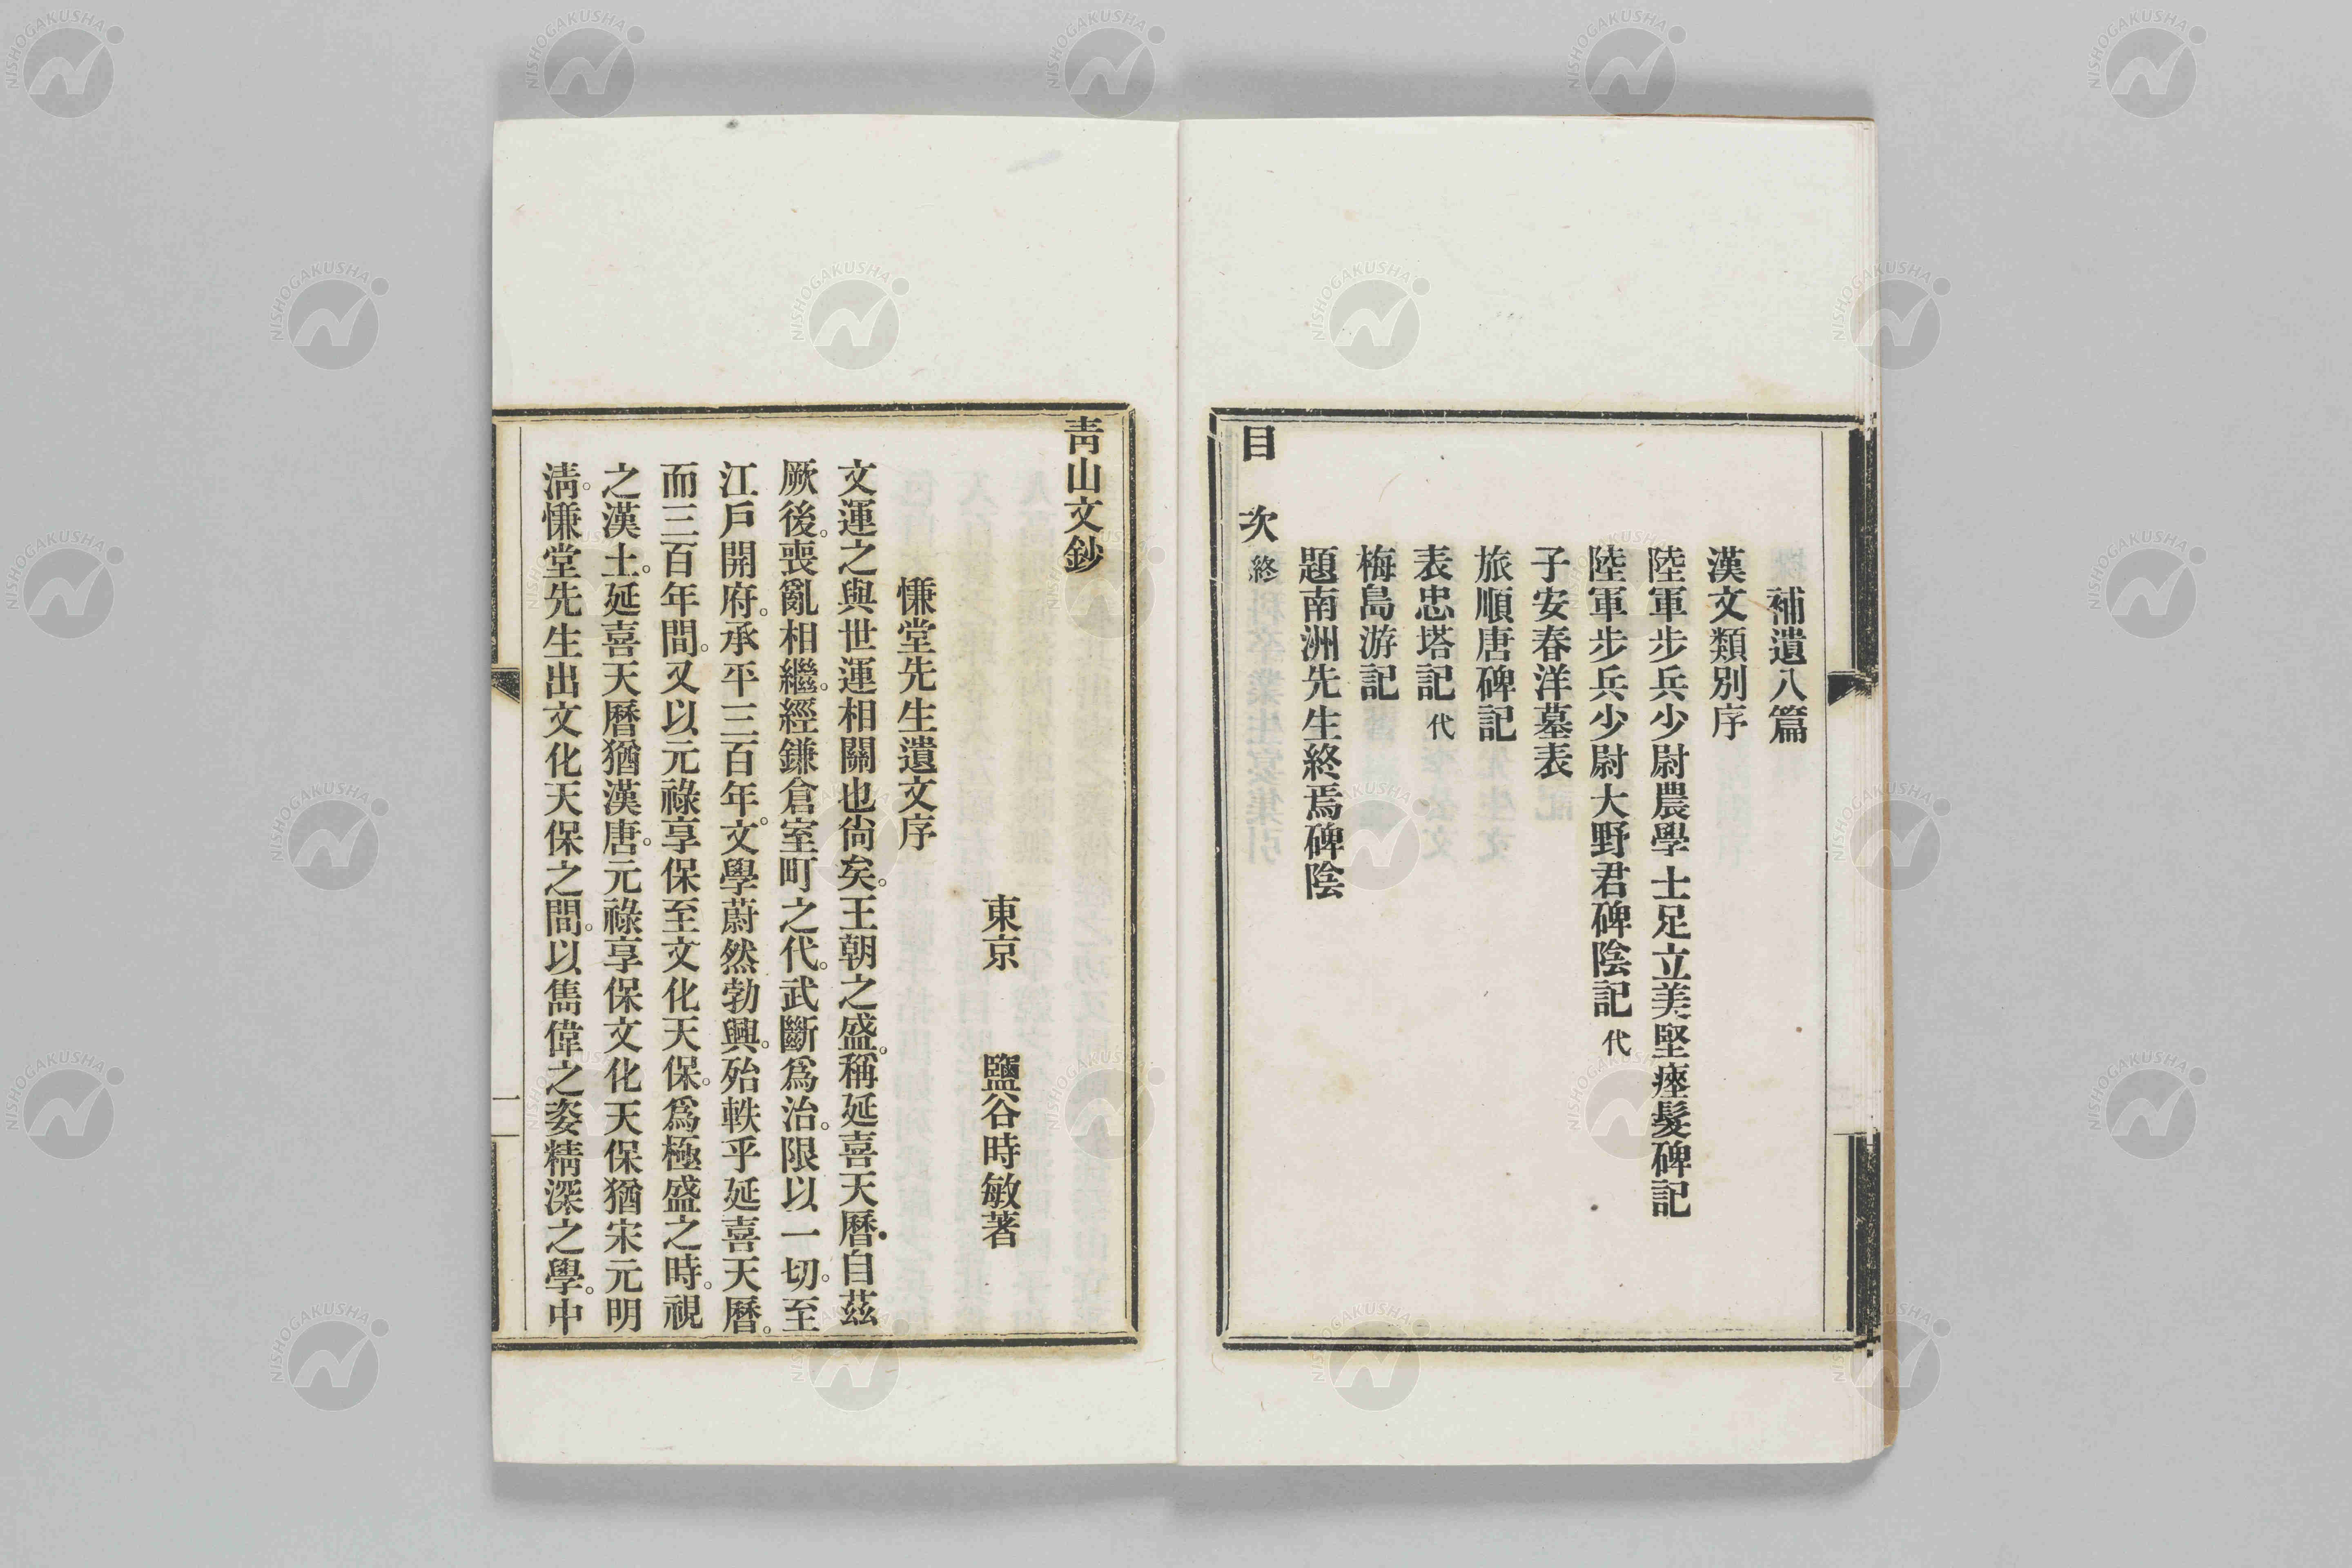 補遺八篇
漢文類別序
陸軍步兵少尉農學士足立美堅瘞髮碑記
陸軍步兵少尉大野君碑陰記 代
子安春洋墓表
旅順唐碑記
表忠塔記 代
梅島游記
題南洲先生終焉碑陰
目次 終
靑山文鈔
東京 鹽谷時敏著
慊堂先生遺文序
文運之與世運相關也尙矣。王朝之盛。稱延喜天曆。自茲
厥後。喪亂相繼。經鎌倉室町之代。武斷爲治。限以一切。至
江戶開府。承平三百年。文學蔚然勃興。殆軼乎延喜天曆。
而三百年間。又以元祿享保至文化天保。爲極盛之時。視
之漢土。延喜天曆猶漢唐。元祿享保文化天保猶宋元明
淸。慊堂先生出文化天保之間。以雋偉之姿精深之學。中
一
NISHOGAKUSHA